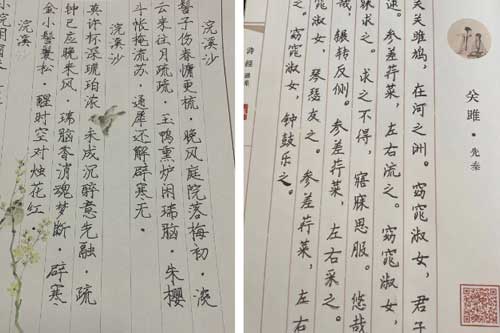 浣溪沙
髻子伤春慵更梳。晚风庭院落梅初。淡
云来往月疏疏。玉鸭熏炉闲瑞脑。朱樱
斗帐掩流苏。通犀还解辟寒无。
浣溪沙
莫许杯深琥珀浓。未成沉醉意先融。疏
钟已应晚来风。瑞脑香消魂梦断。辟寒
金小髻鬟松。醒时空对烛花红。
浣溪沙
小院闲窗春
关雎·先秦
关关雎鸠，在河之洲。窈窕淑女，君子
逑。参差荇菜，左右流之。窈窕淑女，
寐求之。求之不得，寤寐思服。悠哉
哉，辗转反侧。参差荇菜，左右采之。
窕淑女，琴瑟友之。参差荇菜，左右
之。窈窕淑女，钟鼓乐之。
诗经